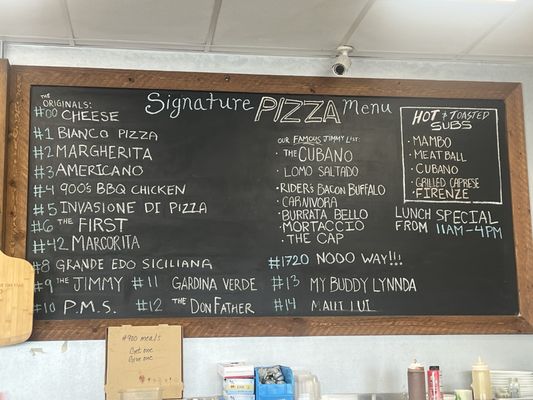 Signature PIZZA Menu
THE ORIGINALS:
#00 CHEESE
#1 BIANCO PIZZA
#2 MARGHERITA
#3 AMERICANO
#4 900's BBQ CHICKEN
#5 INVASIONE DI PIZZA
#6 THE FIRST
#42 MARGORITA
#8 GRANDE EDO SICILIANA
#9 THE JIMMY #11 GARDINA VERDE
#10 P.M.S. #12 THE DON FATHER
OUR FAMOUS JIMMY LIST:
· THE CUBANO
· LOMO SALTADO
· RIDER'S BACON BUFFALO
· CARNIVORA
· BURRATA BELLO
· MORTACCIO
· THE CAP
#1720 NOOO WAY!!!
#13 MY BUDDY LYNNDA
#14 MAUI LUI
HOT & TOASTED
SUBS
· MAMBO
· MEATBALL
· CUBANO
· GRILLED CAPRESE
· FIRENZE
LUNCH SPECIAL
FROM 11AM-4PM
#900 meals
Get one
Give one